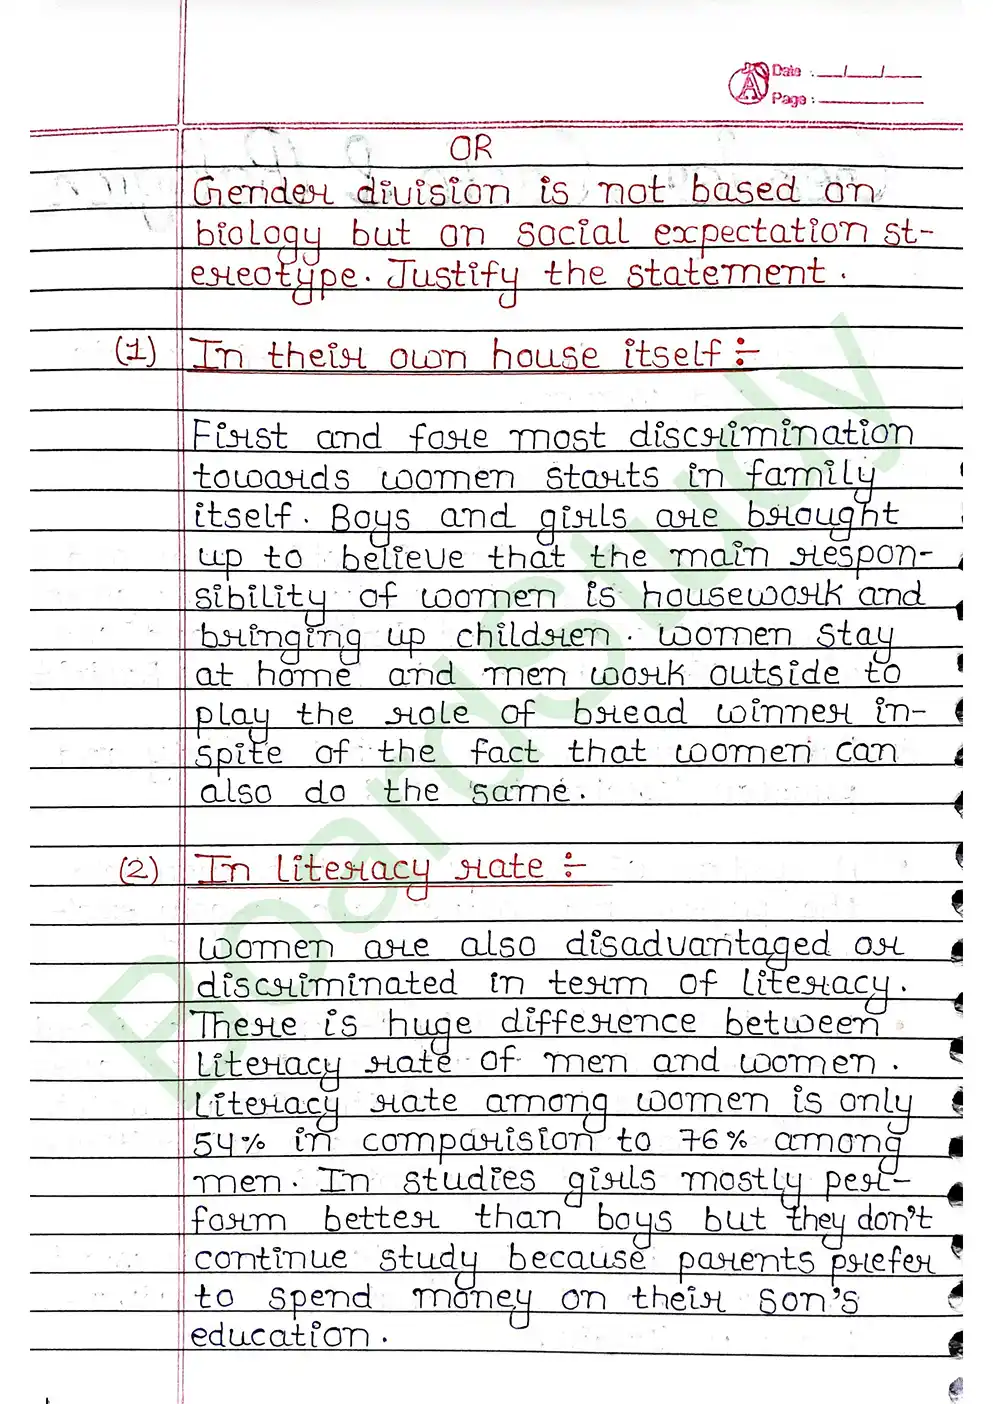 Date : __/__/__
Page :
OR
Gender division is not based on
biology but on social expectation st-
ereotype. Justify the statement.
(1) In their own house itself :-
First and fore most discrimination
towards women starts in family
itself. Boys and girls are brought
up to believe that the main respon-
sibility of women is housework and
bringing up children. women stay
at home and men work outside to
play the role of bread winner in-
spite of the fact that women can
also do the same.
(2) In literacy rate :-
women are also disadvantaged or
discriminated in term of literacy.
There is huge difference between
literacy rate of men and women.
Literacy rate among women is only
54% in comparision to 76% among
men. In studies girls mostly per-
form better than boys but they don't
continue study because parents prefer
to spend money on their son's
education.
BoardStudy